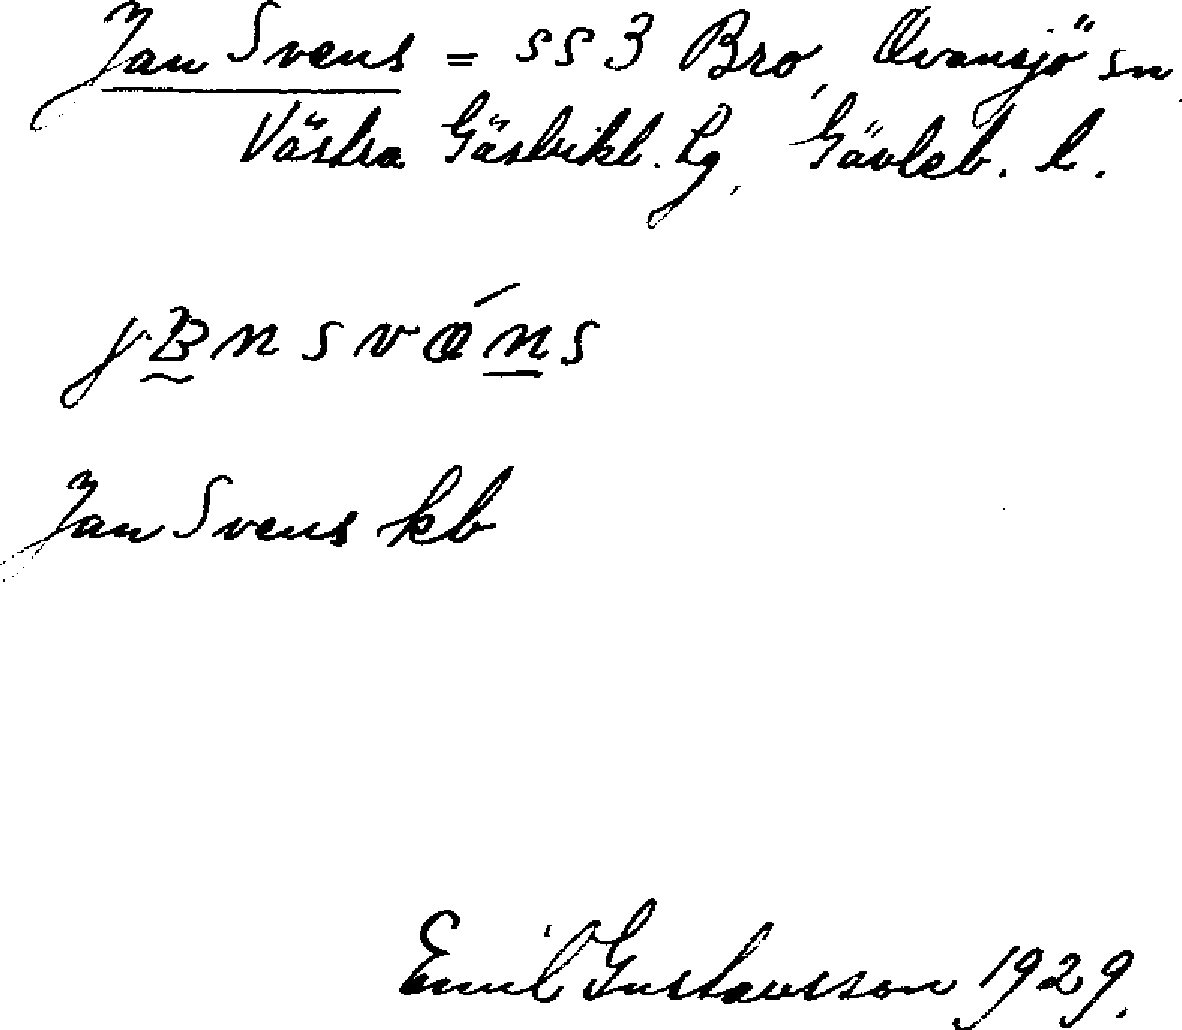 Jan Svens = ss 3 Bro, Ovansjö sn
Västra Gästrikl. hg, Gävleb. l.
Jan Svens kb
Emil Gustavsson 1929.